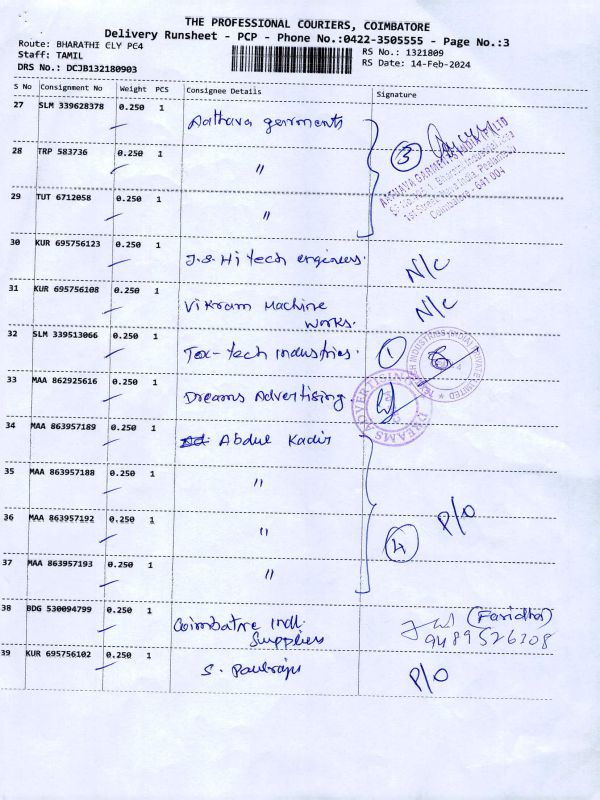 THE PROFESSIONAL COURIERS, COIMBATORE
Delivery Runsheet - PCP - Phone No.:0422-3505555 - Page No.:3
Route: BHARATHI CLY PC4
Staff: TAMIL
DRS No.: DCJB132180903
RS No.: 1321809
RS Date: 14-Feb-2024
S No Consignment No Weight PCS Consignee Details Signature
27 SLM 339628378 0.250 1 Aathava garments 3
28 TRP 583736 0.250 1 "
29 TUT 6712058 0.250 1 "
Coimbatore - 641 004
30 KUR 695756123 0.250 1 J.S. Hi tech engineers. N/C
31 KUR 695756108 0.250 1 Vikram Machine works. N/C
32 SLM 339513066 0.250 1 Tex-tech industries. 1
33 MAA 862925616 0.250 1 Dreams Advertising.
DREAMS ADVERTISING
34 MAA 863957189 0.250 1 Abdul Kadir
35 MAA 863957188 0.250 1 "
36 MAA 863957192 0.250 1 " 4 P/O
37 MAA 863957193 0.250 1 "
38 BDG 530094799 0.250 1 Coimbatre Indl. Suppliers (Faridha)
9489526108
39 KUR 695756102 0.250 1 S. Paulraju P/O